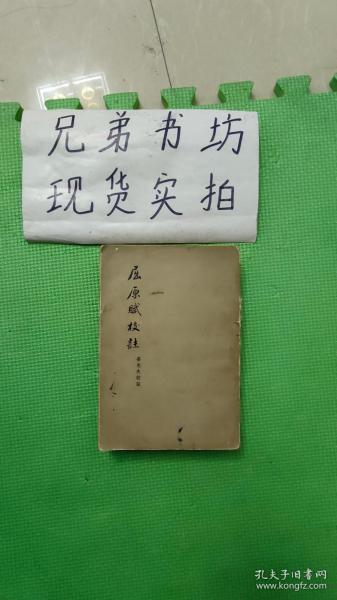 兄弟书坊
现货实拍
屈原賦校註
姜亮夫校註
孔夫子旧书网
www.kongfz.com